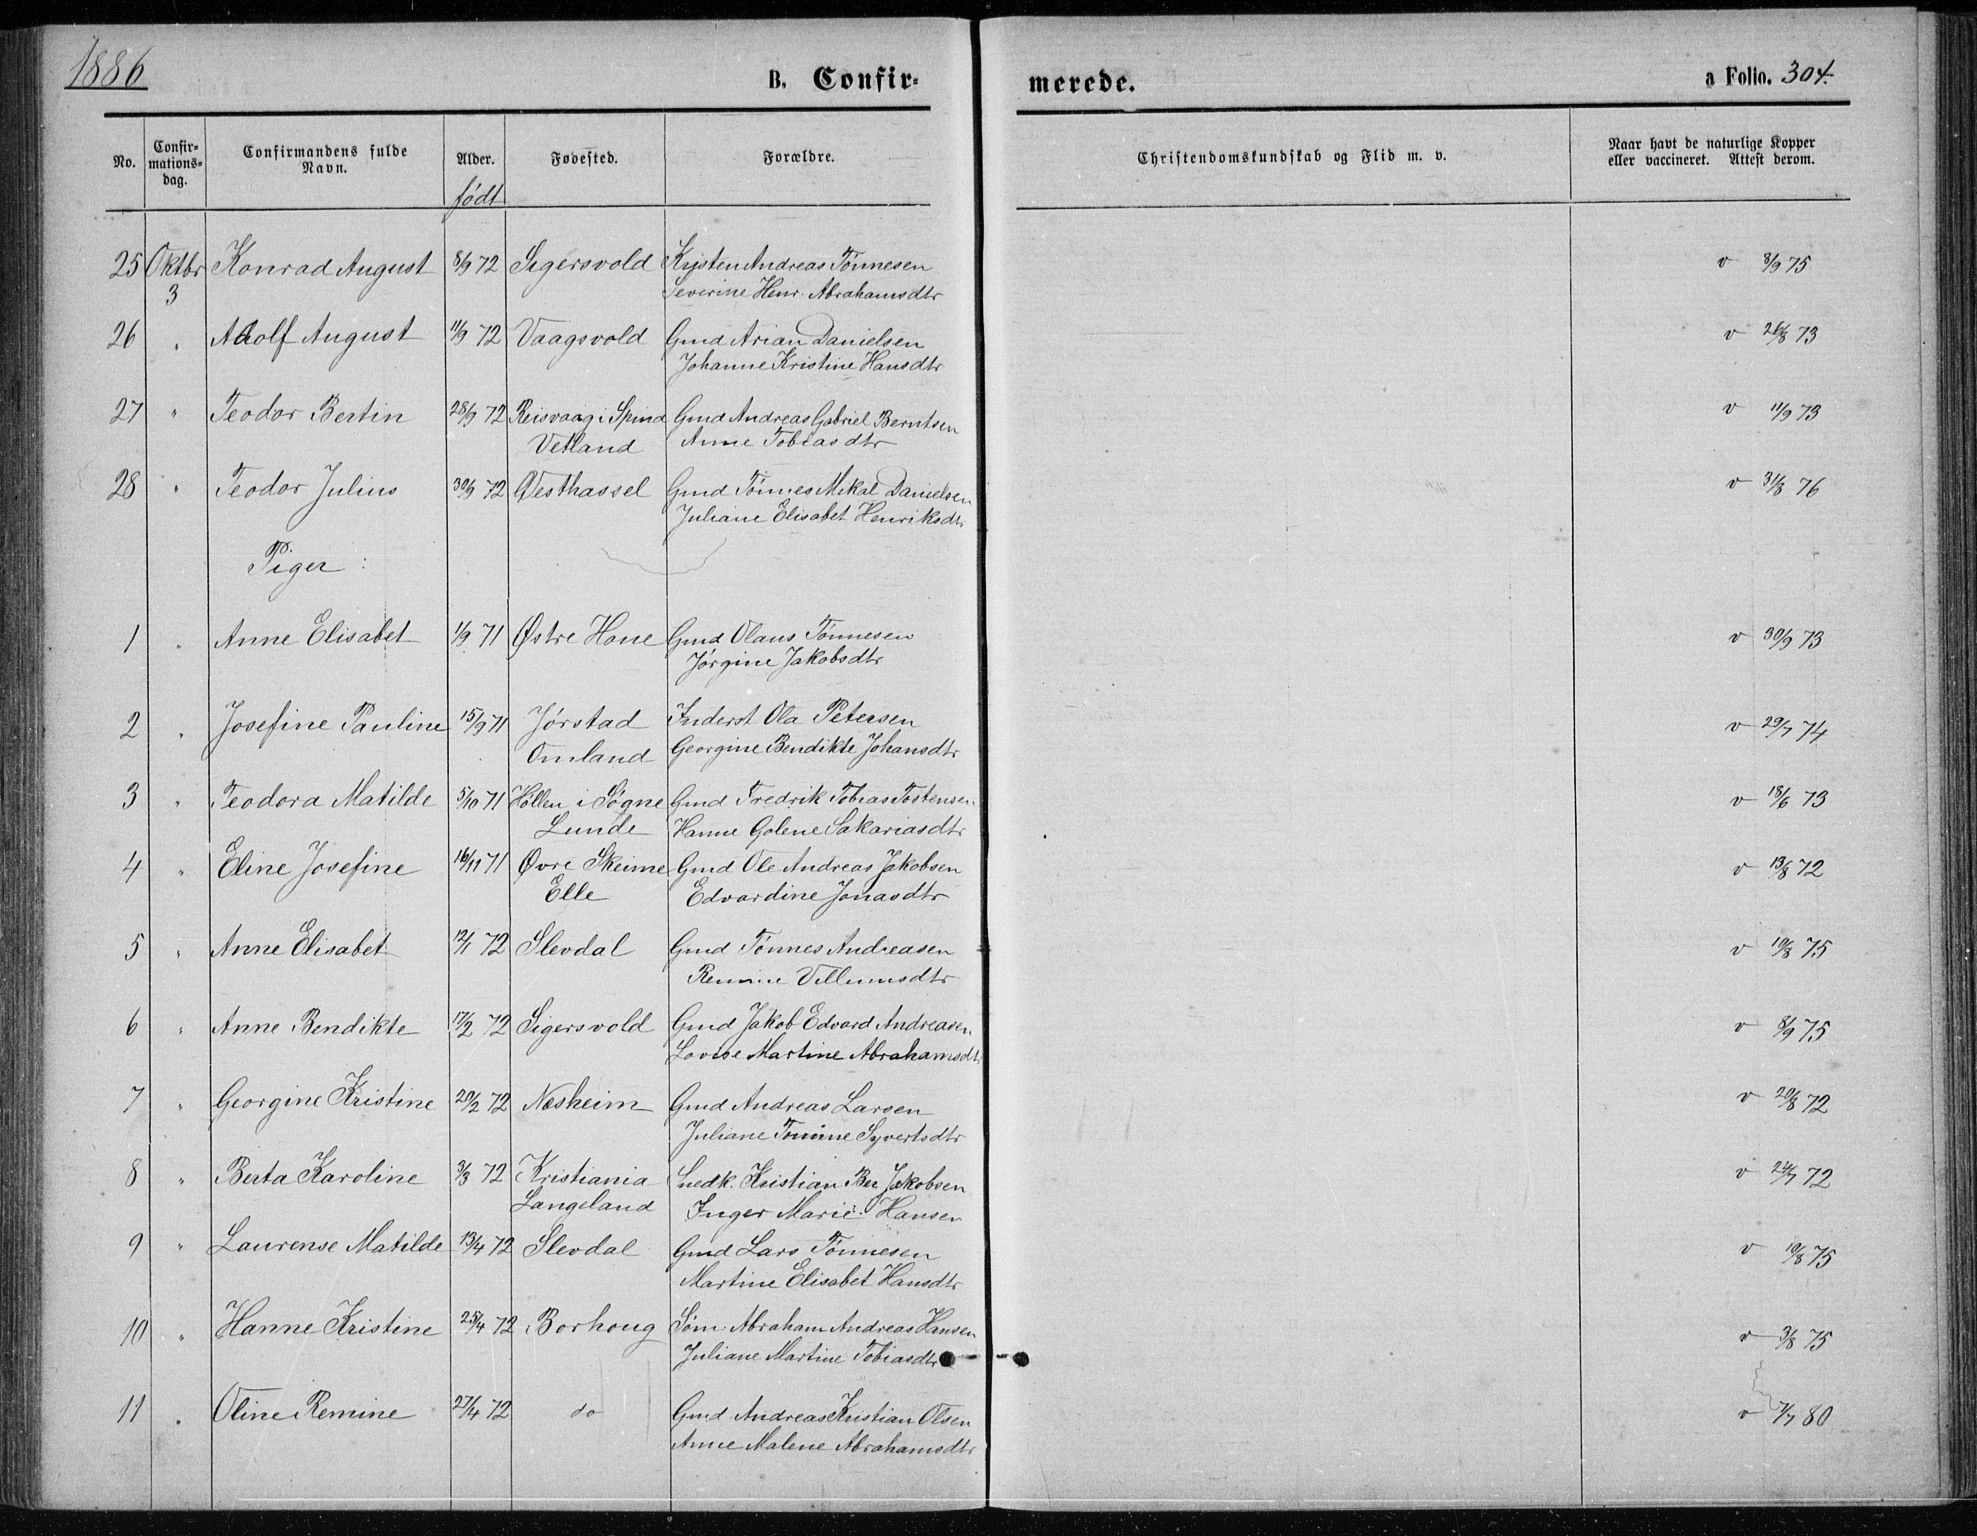 1886
B. Confir-
merede.
a Folio. 304.
No.
Confir-
mations-
dag.
Confirmandens fulde
Navn.
Alder.
født
Fødested.
Forældre.
Christendomskundskab og Flid m. v.
Naar havt de naturlige Kopper
eller vaccineret. Attest derom.
25 Oktbr Konrad August 8/9 72 Sigersvold Kristen Andreas Tønnesen v 8/9 75
3 Severine Henr. Abrahamsdtr
26 " Adolf August 11/9 72 Vaagsvold Gmd Arian Danielsen v 26/8 73
Johanne Kristine Hansdtr
27 " Teodor Bertin 28/9 72 Reisvaag i Spind Gmd Andreas Gabriel Berntsen v 11/9 73
Vetland Anne Tobiasdtr
28 " Teodor Julius 30/9 72 Vesthassel Gmd Tønnes Mikal Danielsen v 31/8 76
Juliane Elisabet Henriksdtr
Piger :
1 " Anne Elisabet 1/9 71 Østre Hane Gmd Olaus Tønnesen v 30/9 73
Jørgine Jakobsdtr
2 " Josefine Pauline 15/9 71 Jørstad Inderst Ola Petersen v 29/7 74
Omland Georgine Bendikte Johansdtr
3 " Teodora Matilde 5/10 71 Høllen i Søgne Gmd Fredrik Tobias Tostensen v 18/6 73
Lunde Hanne Golene Sakariasdtr
4 " Eline Josefine 16/11 71 Øvre Skeime Gmd Ole Andreas Jakobsen v 13/8 72
Elle Edvardine Jonasdtr
5 " Anne Elisabet 12/1 72 Slevdal Gmd Tønnes Andreasen v 19/8 75
Remine Villumsdtr
6 " Anne Bendikte 17/2 72 Sigersvold Gmd Jakob Edvard Andreasen v 8/9 75
Lovise Martine Abrahamsdtr
7 " Georgine Kristine 20/2 72 Nesheim Gmd Andreas Larsen v 20/8 72
Juliane Tomine Syvertsdtr
8 " Berta Karoline 3/3 72 Kristiania Snedk. Kristian Ber Jakobsen v 24/7 72
Langeland Inger Marie Hansen
9 " Laurense Matilde 13/4 72 Slevdal Gmd Lars Tønnesen v 19/8 75
Martine Elisabet Hansdtr
10 " Hanne Kristine 25/4 72 Borhoug Søm. Abraham Andreas Hansen v 3/8 75
Juliane Martine Tobiasdtr
11 " Oline Remine 27/4 72 do Gmd Andreas Kristian Olsen v 7/7 80
Anne Malene Abrahamsdtr